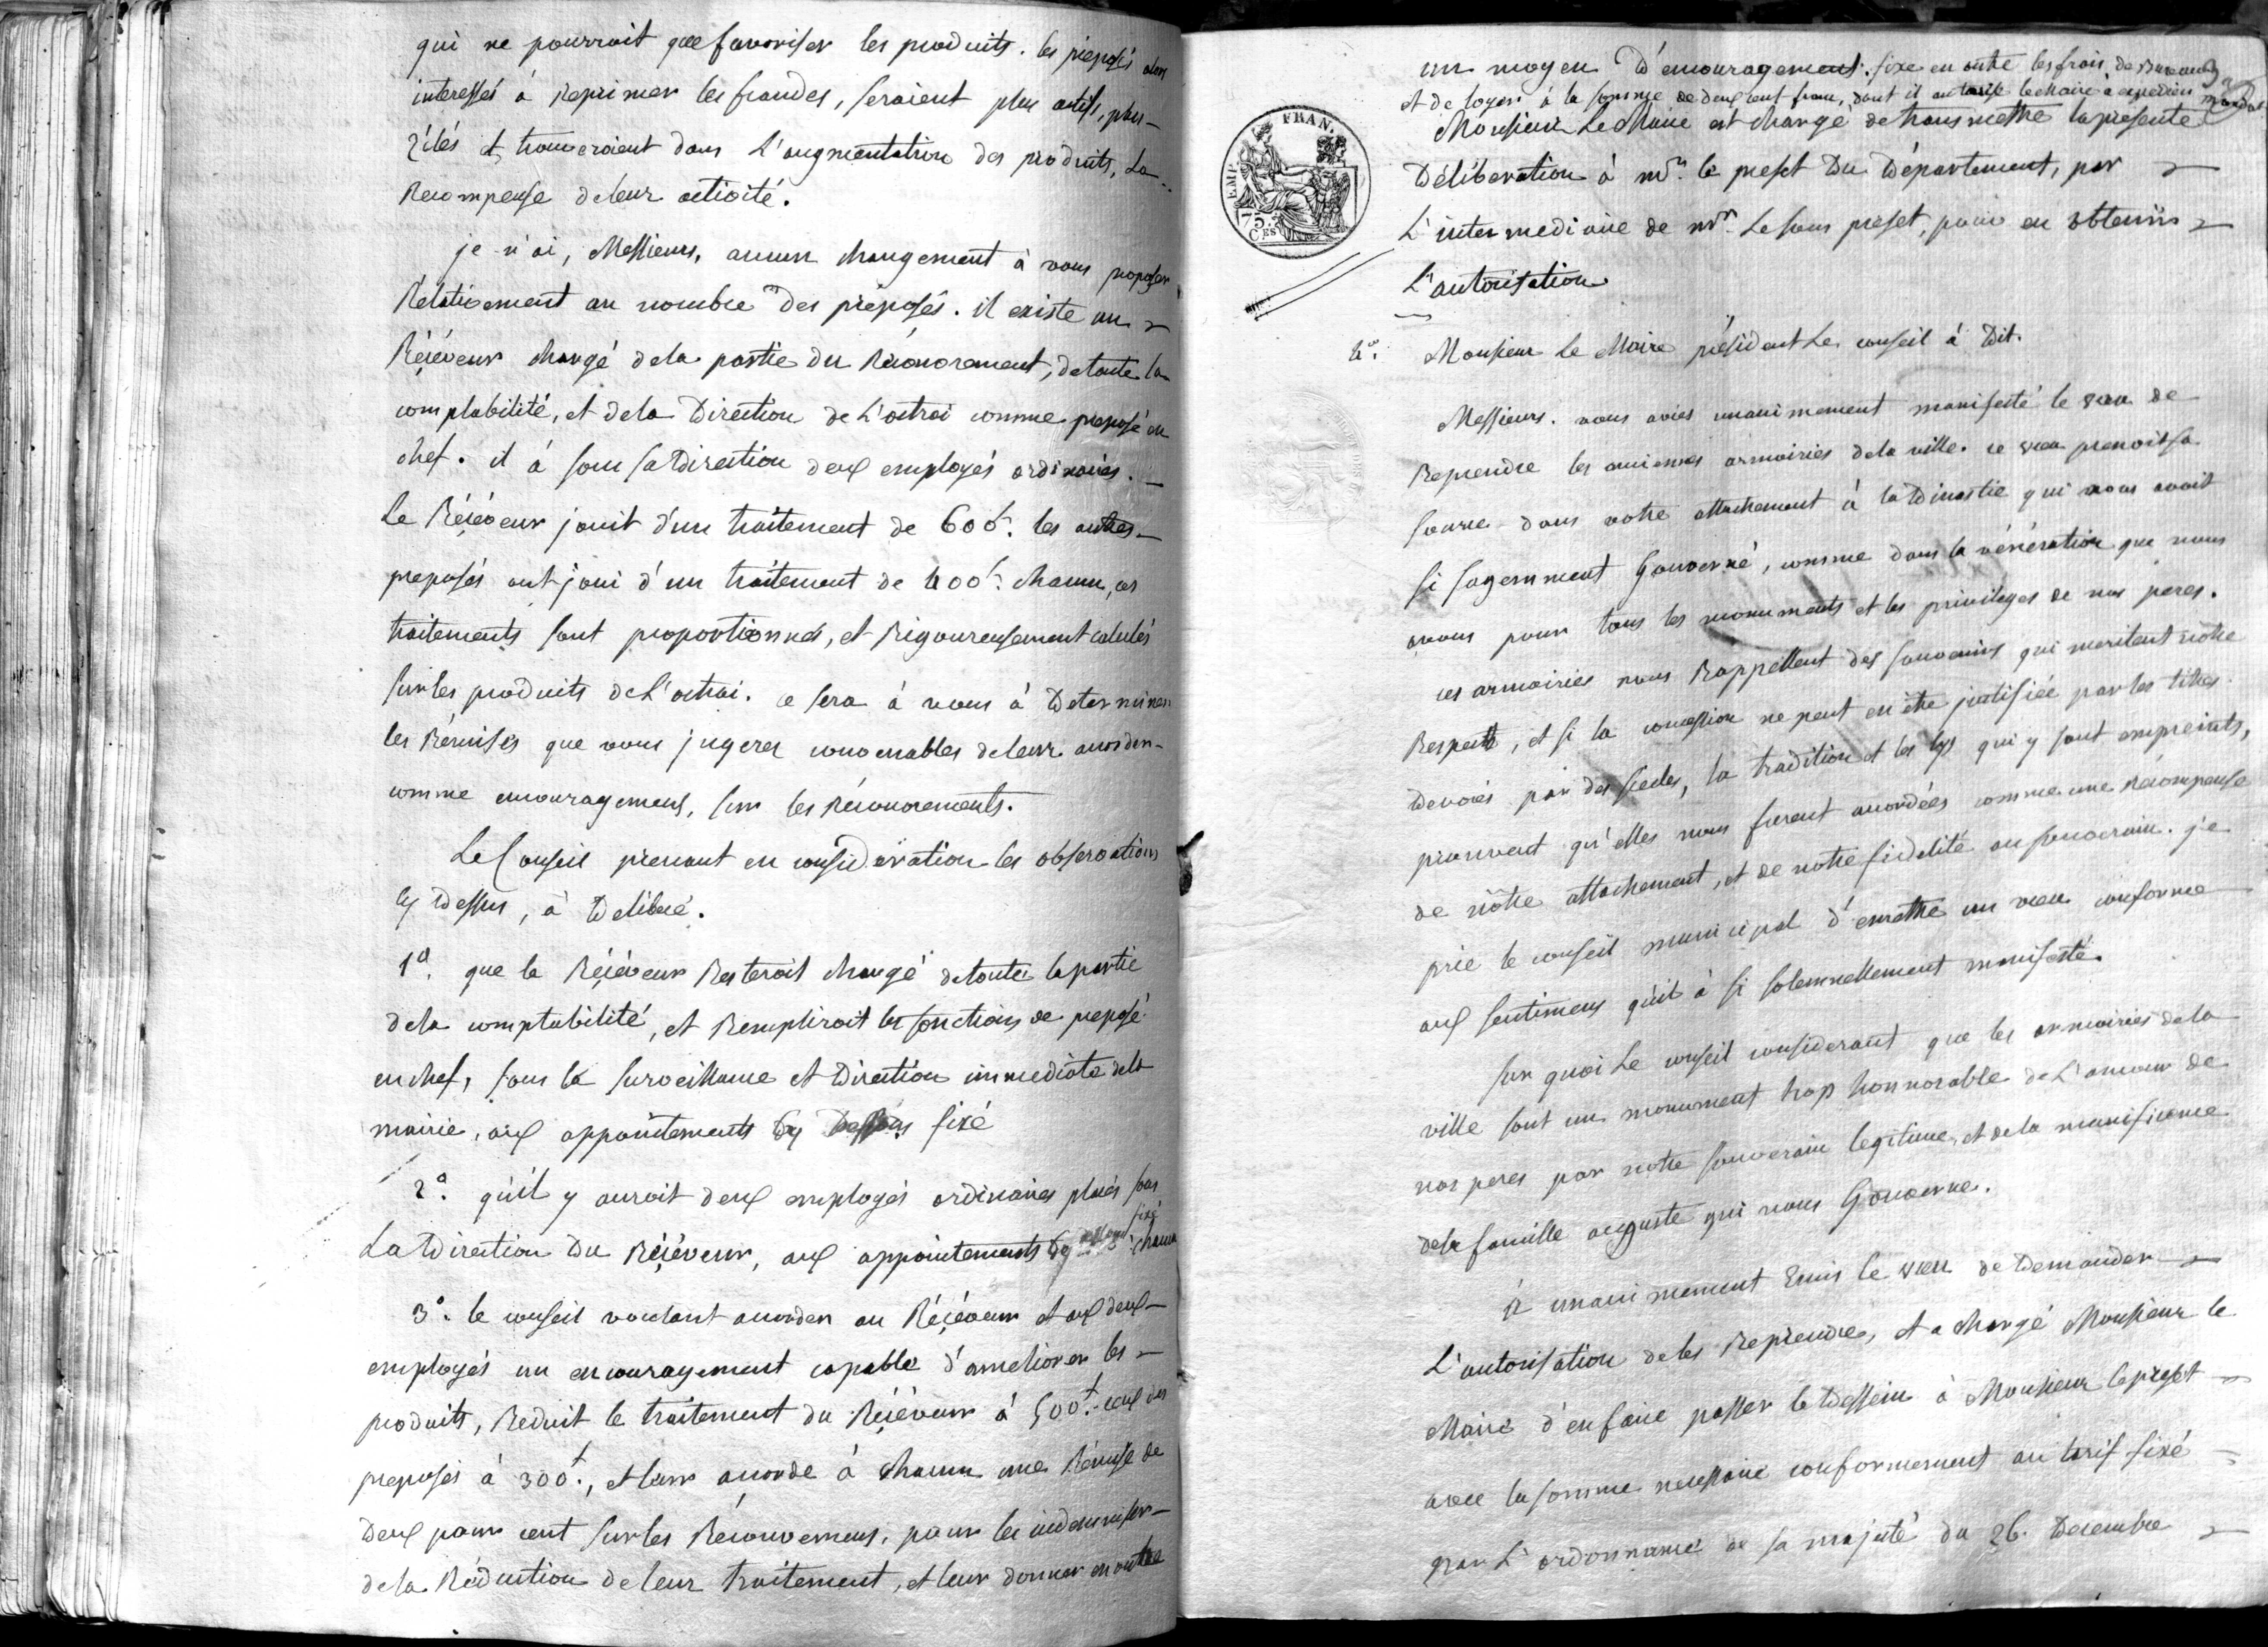 qui ne pourroit que favoriser les produits. les préposés alors
interessés à Reprimer les fraudes, seraient plus actifs, plus
zélés et trouveroient dans L'augmentation des produits, La
Recompense de leur activité.
je n'ai, Messieurs, aucun changement à vous proposer
Relativement au nombre des préposés. il existe un
Réçéveur chargé dela partie du Récouvrement, detoute la
comptabilité, et dela Direction de L'octroi comme preposé en
chef. il à sous sa Direction deux employés ordinaires.
Le Réçéveur jouit d'un traitement de 600f. les autres
preposés ont joui d'un traitement de 400f. chacun, ces
traitements sont proportionnés, et Rigoureusement calculés
sur les produits de L'octroi. ce sera à vous à Determiner
les Rémises que vous jugerez convenables de leur accorder
comme encouragement, sur les Récouvrements.
Le Conseil prenant en considération les observations
cy Dessus, à Delibéré.
1º. que le Réçéveur Resteroit chargé detoute la partie
dela comptabilité, et Rempliroit les fonctions de preposé
en chef, sous la surveillance et Direction immediate dela
mairie, aux appointements cy Dessous fixé
2º. qu'il y auroit deux employés ordinaires placés sous
La Direction Du Réçéveur, aux appointements cy dessous fixé chacun
3º. le conseil voulant accorder au Réçéveur et aux deux
employés un encouragement capable d'ameliorer les
produits, Reduit le traitement du Réçéveur à 500f. ceux des
preposés à 300f., et leur accorde à chacun une Rémise de
Deux pour cent sur les Récouvremens, pour les indemniser
dela Réduction de leur traitement, et leur donner en outre
un moyen D'encouragement. fixe en outre les frais de Bureau
et de loyer à la somme de deux cent franc, dont il autorise le Maire a expedier mandat
Monsieur Le Maire est chargé de transmettre la presente
Déliberation à mr. le prefet Du Département, par
L'intermediaire de mr. Le sous prefet, pour en obtenir
L'autorisation
FRAN.
75
CES
4º. Monsieur Le Maire président Le conseil à Dit.
Messieurs. vous avies unanimement manifesté le vœu de
Reprendre les anciennes armoiries dela ville. ce vœu prenoit sa
source dans votre attachement à la Dinastie qui nous avoit
si sagemment Gouverné, comme dans la vénération que nous
avons pour tous les monuments et les privileges de nos peres.
ces armoiries nous Rappellent des souvenirs qui meritent nôtre
Respect, et si la concession ne peut en être justifiée par les titres
Devorés par des siecles, la tradition et les lys qui y sont empreints,
prouvent qu'elles nous furent accordées comme une Récompense
de nôtre attachement, et de notre fidelité au souverain. je
prie le conseil municipal d'emettre un vœu conforme
aux sentimens qu'il à si solemnellement manifesté.
sur quoi Le conseil considerant que les armoiries dela
ville sont un monument trop honnorable de L'amour de
nos peres par notre souverain legitime, et dela munificence
dela famille auguste qui nous Gouverne.
à unanimement Emis le vœu de Demander
L'autorisation deles Reprendre, et a chargé Monsieur le
Maire d'en faire passer le Dessein à Monsieur le prefet
avec la somme necessaire conformement au tarif fixé
par L'ordonnance de sa majesté du 26. Decembre